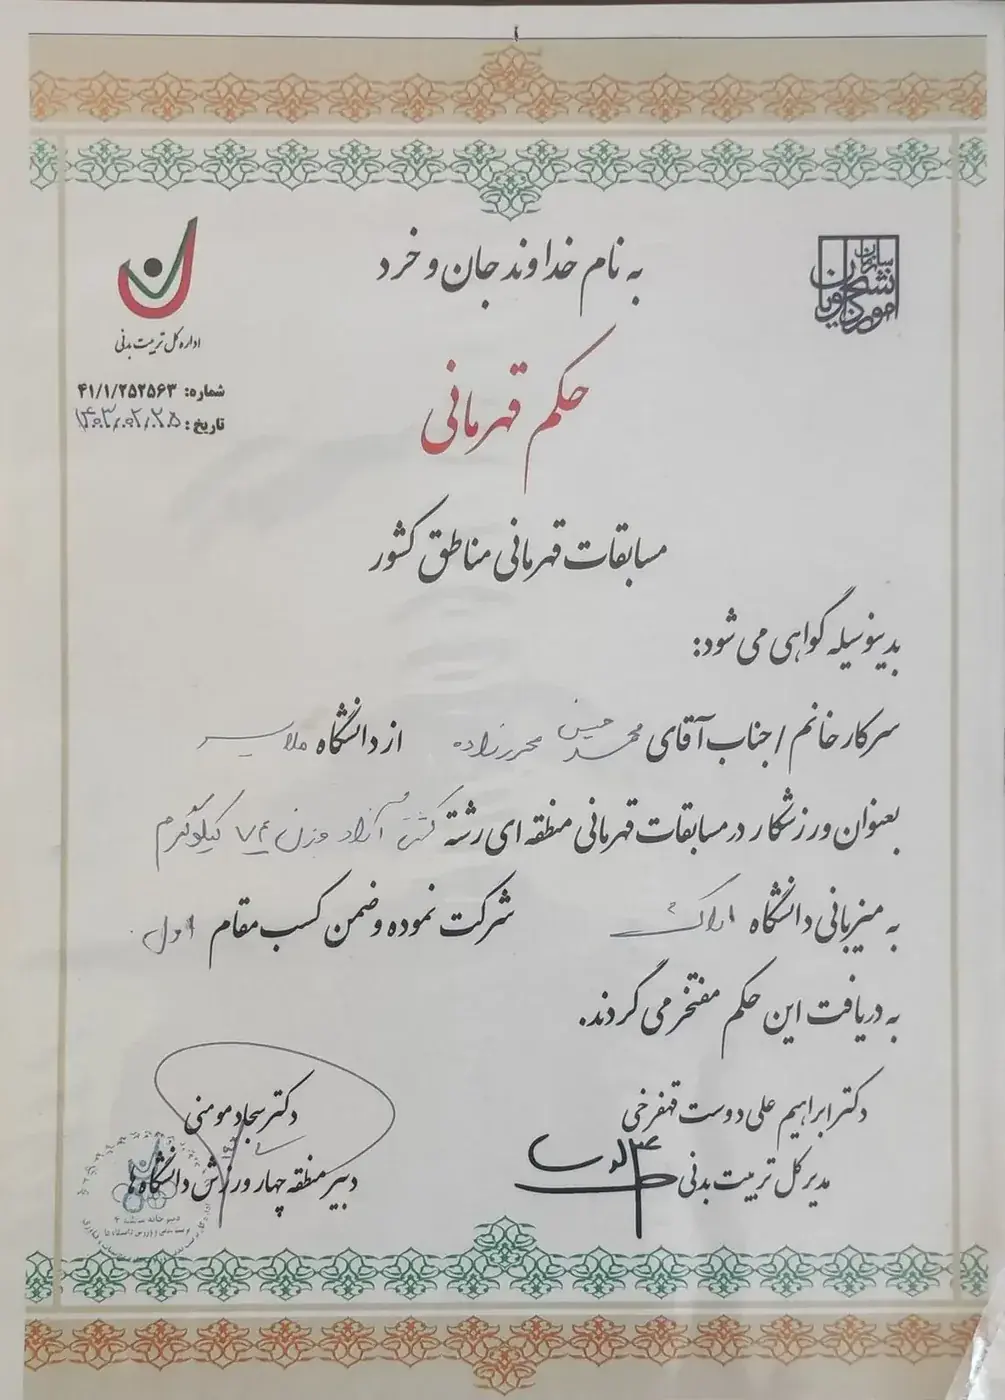 به نام خداوند جان و خرد
سازمان امور دانشجویان
اداره کل تربیت بدنی
شماره: ۴۱/۱/۲۵۲۵۶۳
تاریخ: ۱۴۰۳/۰۲/۲۵
حکم قهرمانی
مسابقات قهرمانی مناطق کشور
بدینوسیله گواهی می شود:
سرکار خانم / جناب آقای محمد حسین محرزاده از دانشگاه ملایر
بعنوان ورزشکار در مسابقات قهرمانی منطقه ای رشته کشتی آزاد وزن ۷۴ کیلوگرم
به میزبانی دانشگاه اراک شرکت نموده و ضمن کسب مقام اول
به دریافت این حکم مفتخر می گردند.
دکتر ابراهیم علی دوست قهفرخی
مدیر کل تربیت بدنی
دکتر سجاد مومنی
دبیر منطقه چهار ورزش دانشگاه ها